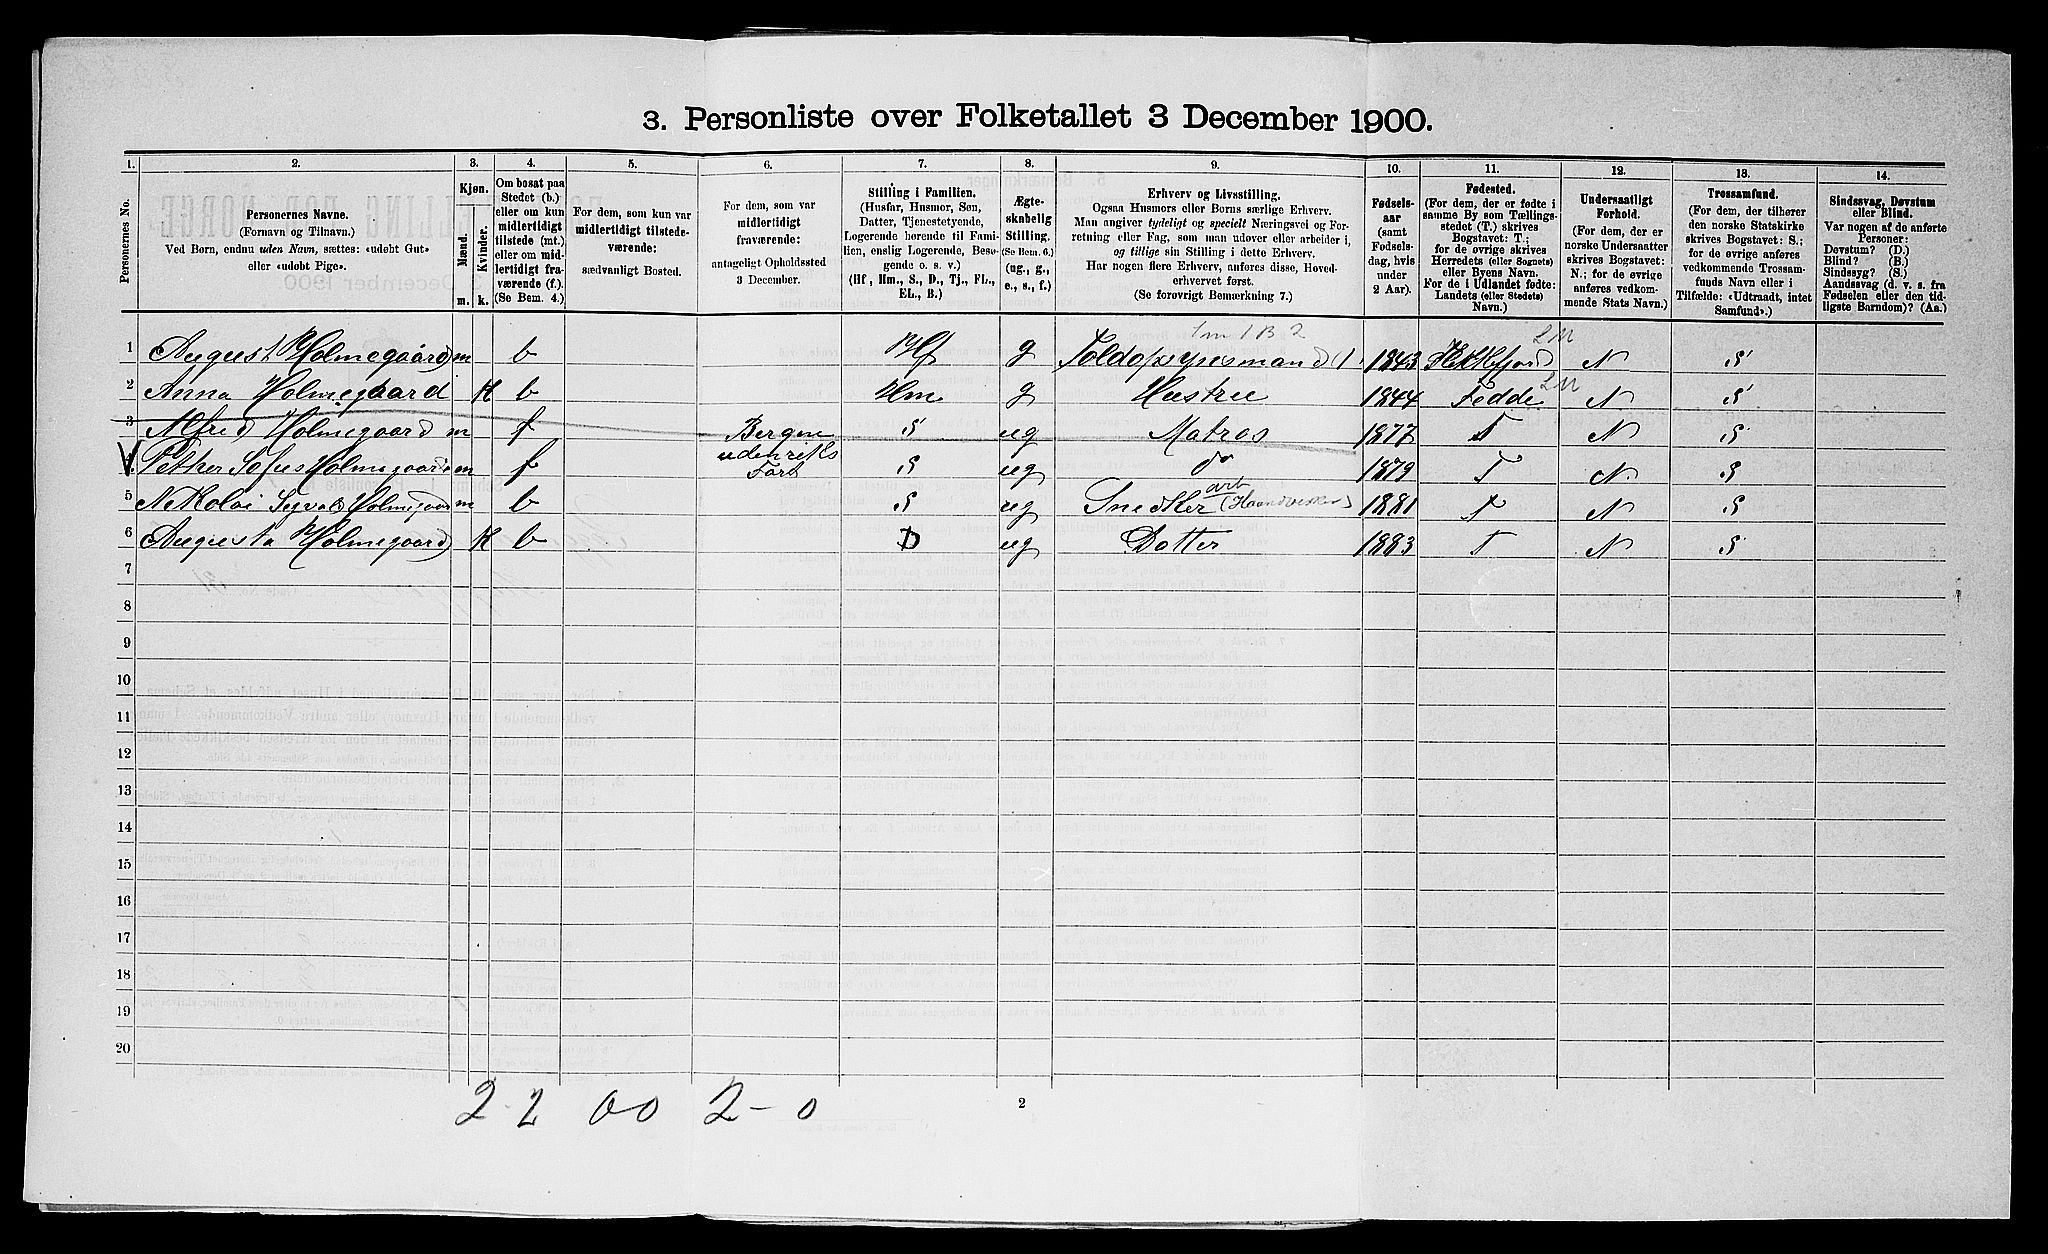 3. Personliste over Folketallet 3 December 1900.
1. 2. 3. 4. 5. 6. 7. 8. 9. 10. 11. 12. 13. 14.
Personernes No.
Personernes Navne.
(Fornavn og Tilnavn.)
Ved Børn, endnu uden Navn, sættes: «udøbt Gut»
eller «udøbt Pige».
Kjøn.
Mænd. Kvinder.
m. k.
Om bosat paa
Stedet (b.)
eller om kun
midlertidigt
tilstede (mt.)
eller om mid-
lertidigt fra-
værende (f.)
(Se Bem. 4.)
For dem, som kun var
midlertidigt tilstede-
værende:
sædvanligt Bosted.
For dem, som var
midlertidigt
fraværende:
antageligt Opholdssted
3 December.
Stilling i Familien.
(Husfar, Husmor, Søn,
Datter, Tjenestetyende,
Logerende hørende til Fami-
lien, enslig Logerende, Besø-
gende o. s. v.)
(Hf, Hm., S., D., Tj., FL.,
EL., B.)
Ægte-
skabelig
Stilling.
(Se Bem. 6.)
(ug., g.,
e., s., f.)
Erhverv og Livsstilling.
Ogsaa Husmors eller Børns særlige Erhverv.
Man angiver tydeligt og specielt Næringsvei og For-
retning eller Fag, som man udøver eller arbeider i,
og tillige sin Stilling i dette Erhverv.
Har nogen flere Erhverv, anføres disse, Hoved-
erhvervet først.
(Se forøvrigt Bemærkning 7.)
Fødsels-
aar
(samt
Fødsels-
dag, hvis
under
2 Aar).
Fødested.
(For dem, der er fødte i
samme By som Tællings-
stedet (T.) skrives
Bogstavet: T.;
for de øvrige skrives
Herredets (eller Sognets)
eller Byens Navn.
For de i Udlandet fødte:
Landets (eller Stedets)
Navn.)
Undersaatligt
Forhold.
(For dem, der er
norske Undersaatter
skrives Bogstavet:
N.; for de øvrige
anføres vedkom-
mende Stats Navn.)
Trossamfund.
(For dem, der tilhører
den norske Statskirke
skrives Bogstavet: S.;
for de øvrige anføres
vedkommende Trossam-
funds Navn eller i
Tilfælde: «Udtraadt, intet
Samfund».)
Sindssvag, Døvstum
eller Blind.
Var nogen af de anførte
Personer:
Døvstum? (D.)
Blind? (B.)
Sindssyg? (S.)
Aandssvag (d. v. s. fra
Fødselen eller den tid-
ligste Barndom)? (Aa.)
1 August Holmegaard m b Hf g Toldopsynsmand 1843 Flekkefjord N S
2 Anna Holmegaard K b Hm g Hustru 1844 Fedde N S
3 Alfred Holmegaard m f Bergen S ug Matros 1877 T N S
4 Pether Sofus Holmegaard m f udenriks Fart S ug do 1879 T N S
5 Nikolai Segvald Holmegaard m b S ug Snedker arb (Haandverker) 1881 T N S
6 Augusta Holmegaard K b D ug Datter 1883 T N S
7
8
9
10
11
12
13
14
15
16
17
18
19
20
2 2 00 2 - 0
2